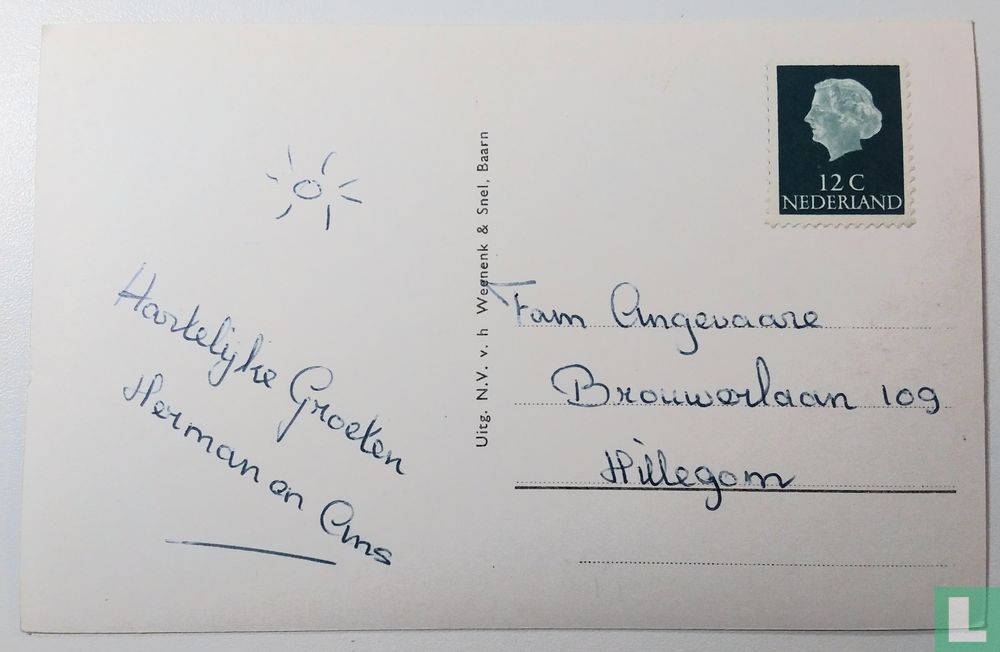 Hartelijke Groeten
Herman en Ans
Uitg. N.V. v. h Wegnenk & Snel, Baarn
12 C
NEDERLAND
Fam Angevaare
Brouwerlaan 109
Hillegom
L